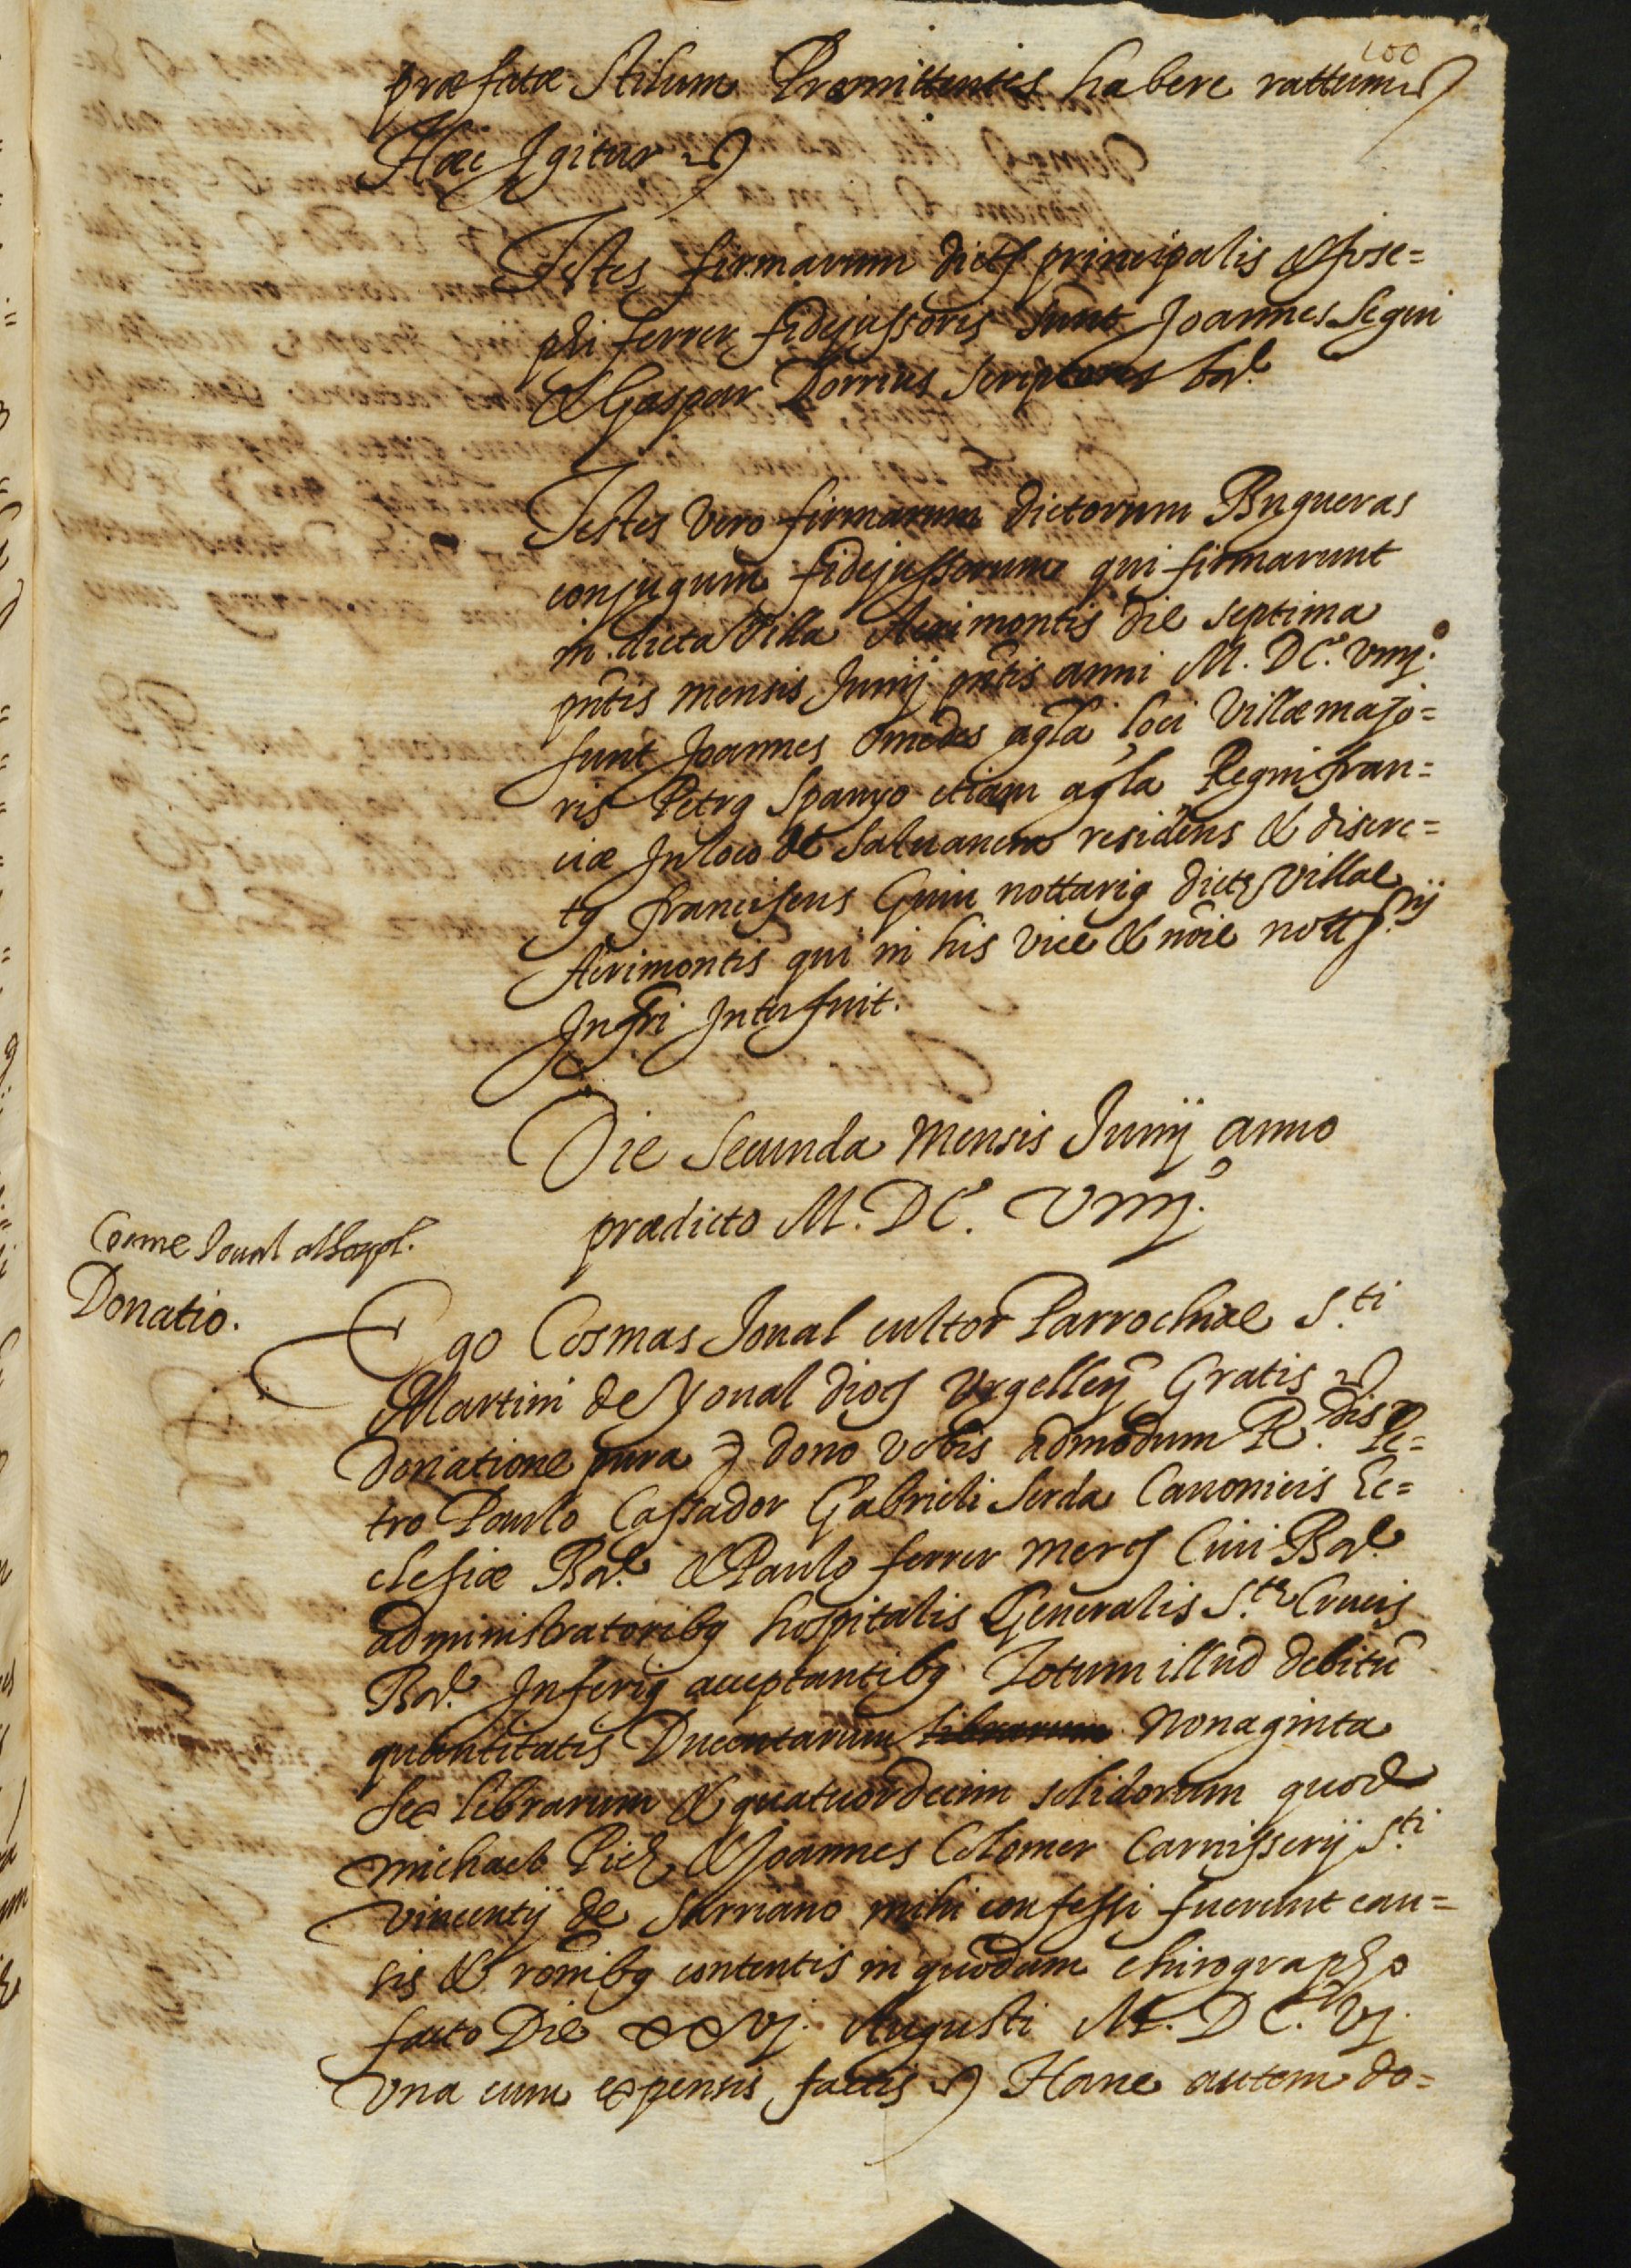 100
præfatæ stilum Promittentes habere rattum &c
Hæc Igitur &c
Testes firmarum dictj principalis & Jose=
phi ferrer fidejussoris sunt Joannes Segui
& Gaspar Dorrius scriptores bar.
Testes vero firmarum dictorum Bugueras
conjugum fidejussorum qui firmarunt
in dicta villa Acrimontis die septima
pñtis mensis Junij pñtis anni M. DC.º viiij.º
sunt Joannes Omedes agla loci Villæmajo=
ris Petrq Spanyo etiam agla Regni fran=
ciæ In loco de Saluanera residens & discre=
tq franciscus Guiu nottariq dictę villae
Acrimontis qui in his vice & noie nottj
Infri Interfuit.
Die secunda mensis Junij anno
prædicto M. DC.º viiij.º
Cosme Joual
Donatio.
Ego Cosmas Jonal cultor Parrochiae S.ti
Martini de Jonal diocs Urgelleñ Gratis &c
Donatione pura &c dono vobis admodum R.dis Pe=
tro Paulo Cassador Gabrieli Serda Canonicis Ec=
clesiæ Bar. & Paulo ferrer mercs Ciui Bar.
administratoribq hospitalis Generalis S.tę Crucis
Bar. Inferiq acceptantibq Totum illud debitũ
quantitatis Ducentarum librarum nonaginta
sex librarum & quatuordecim solidorum quod
michael Pich & Joannes Colomer Carnisserij S.ti
vincentij de Sarriano mihi confessi fuerunt cau=
sis & ronibq contentis in quodam chirographo
facto Die xxvj. Augusti M. DC.º vj.
Vna cum expensis factis &c Hanc autem do=